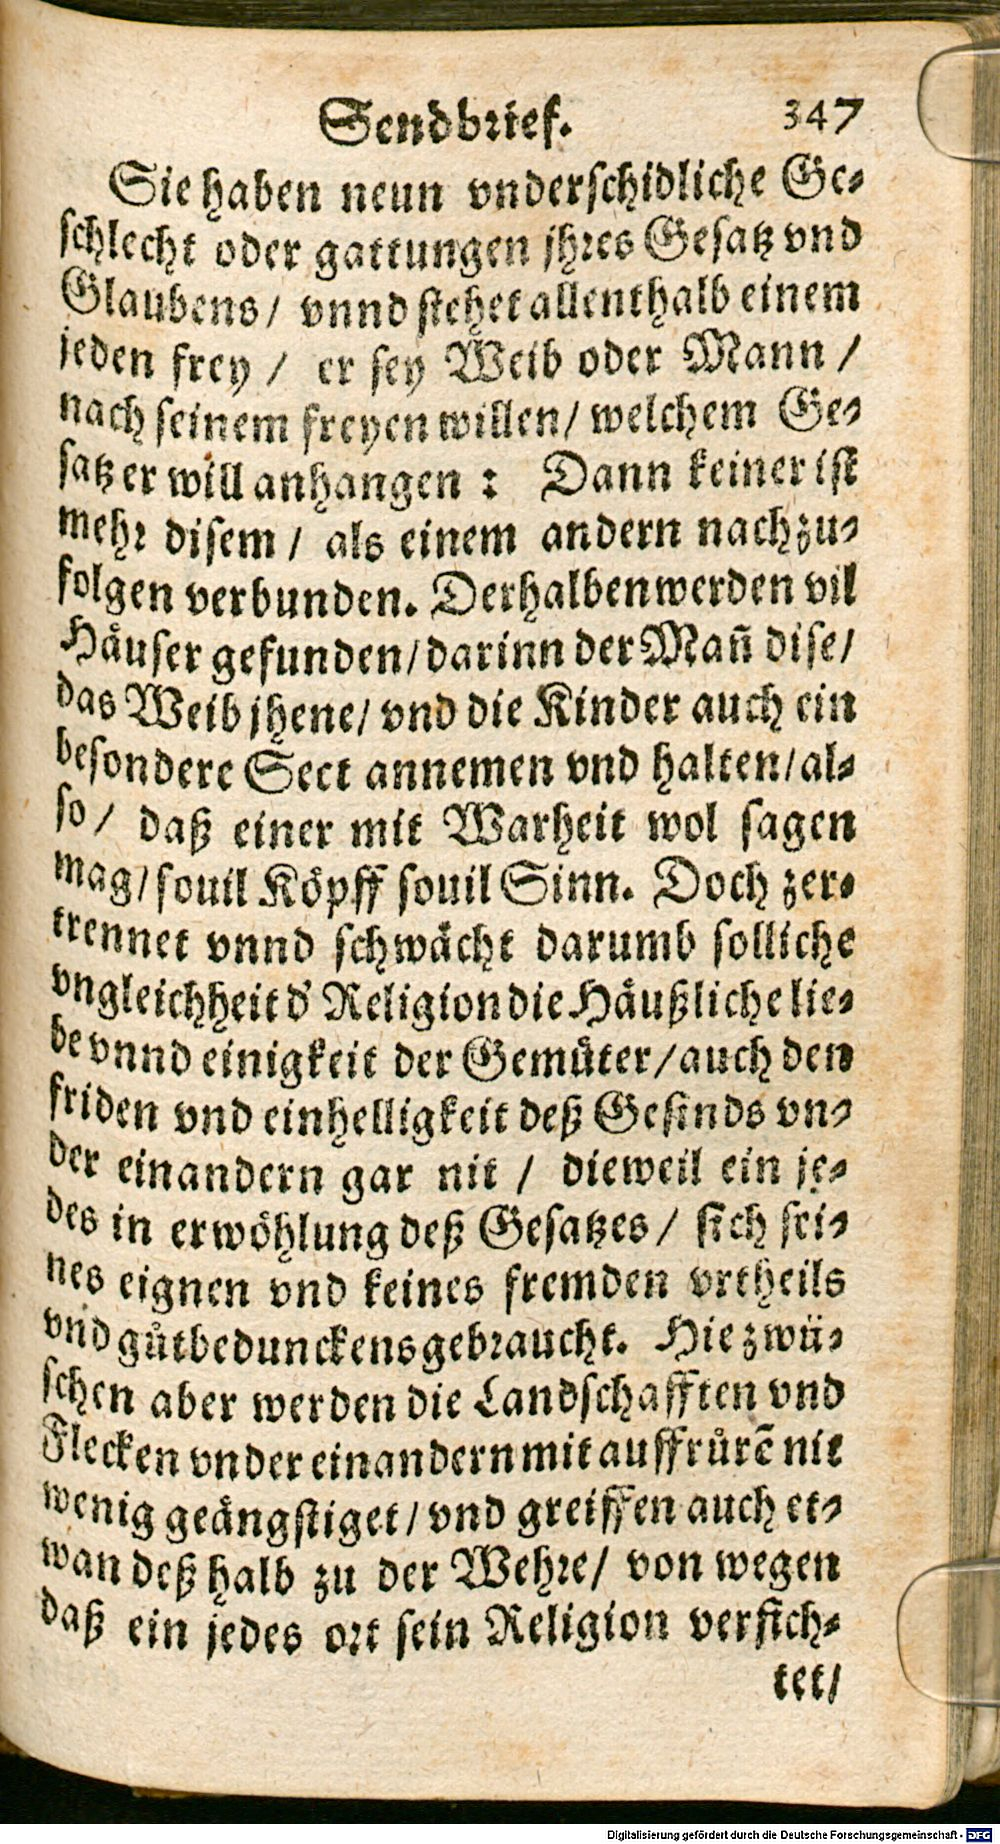 Sendbrief. 347
Sie haben neun vnderschidliche Ge-
schlecht oder gattungen jhres Gesatz vnd
Glaubens/ vnnd stehet allenthalb einem
jeden frey / er sey Weib oder Mann /
nach seinem freyen willen/ welchem Ge-
satz er will anhangen : Dann keiner ist
mehr disem / als einem andern nachzu-
folgen verbunden. Derhalben werden vil
Häuser gefunden/ darinn der Mañ dise/
das Weib jhene/ vnd die Kinder auch ein
besondere Sect annemen vnd halten/ al-
so / daß einer mit Warheit wol sagen
mag/ souil Köpff souil Sinn. Doch zer-
trennet vnnd schwächt darumb solliche
vngleichheit d' Religion die Häußliche lie-
be vnnd einigkeit der Gemüter/ auch den
friden vnd einhelligkeit deß Gesinds vn-
der einandern gar nit / dieweil ein je-
des in erwöhlung deß Gesatzes / sich sei-
nes eignen vnd keines fremden vrtheils
vnd gůtbedunckens gebraucht. Hiezwü-
schen aber werden die Landschafften vnd
Flecken vnder einandern mit auffrůrē nit
wenig geängstiget / vnd greiffen auch et-
wan deßhalb zu der Wehre/ von wegen
daß ein jedes ort sein Religion versich-
tet/
Digitalisierung gefördert durch die Deutsche Forschungsgemeinschaft - DFG